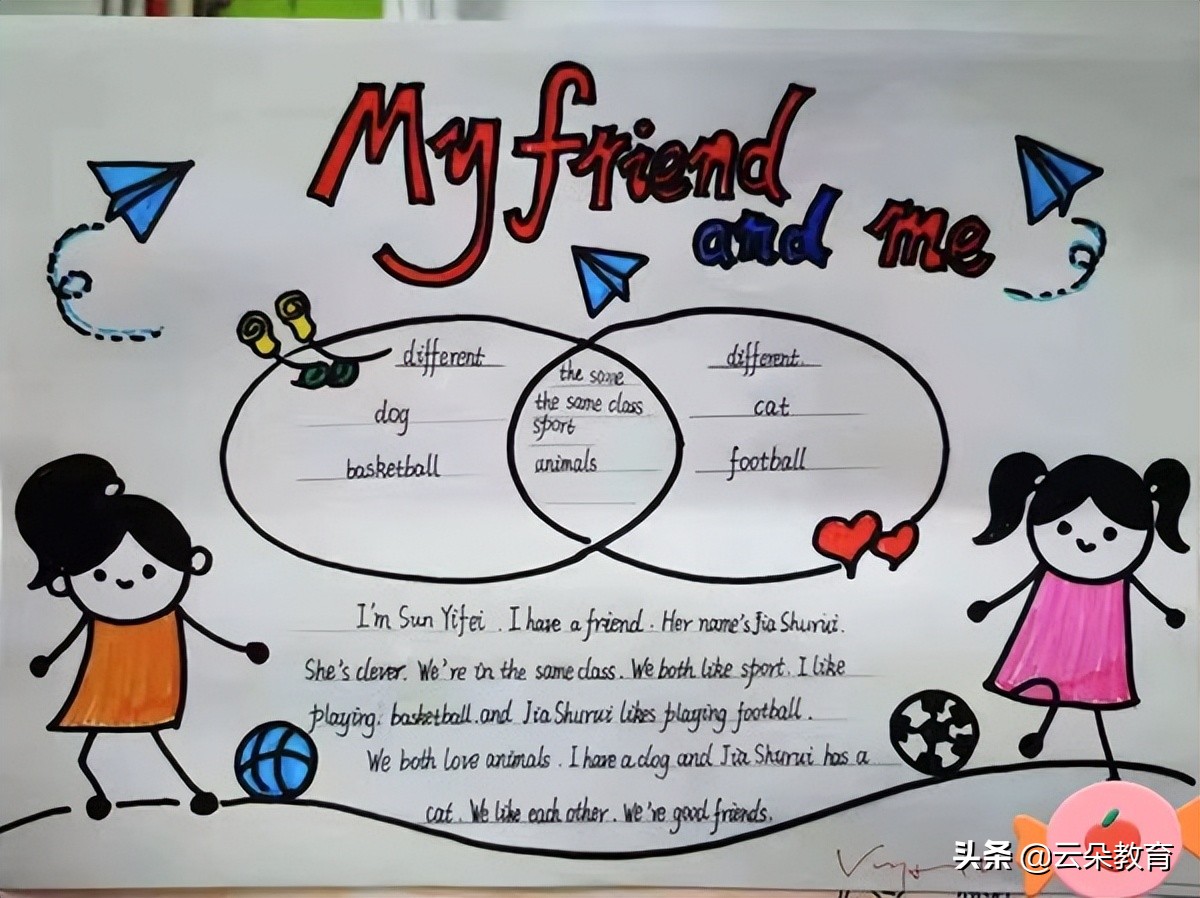 My friend
and me
different
dog
basketball
the same
the same class
sport
animals
different.
cat
football
I'm Sun Yifei . I have a friend . Her name's Jia Shurui.
She's clever. We're in the same class. We both like sport. I like
playing. basketball.and Jia Shurui likes playing football.
We both love animals . I have a dog and Jia Shurui has a
cat . We like each other. We're good friends.
头条 @云朵教育